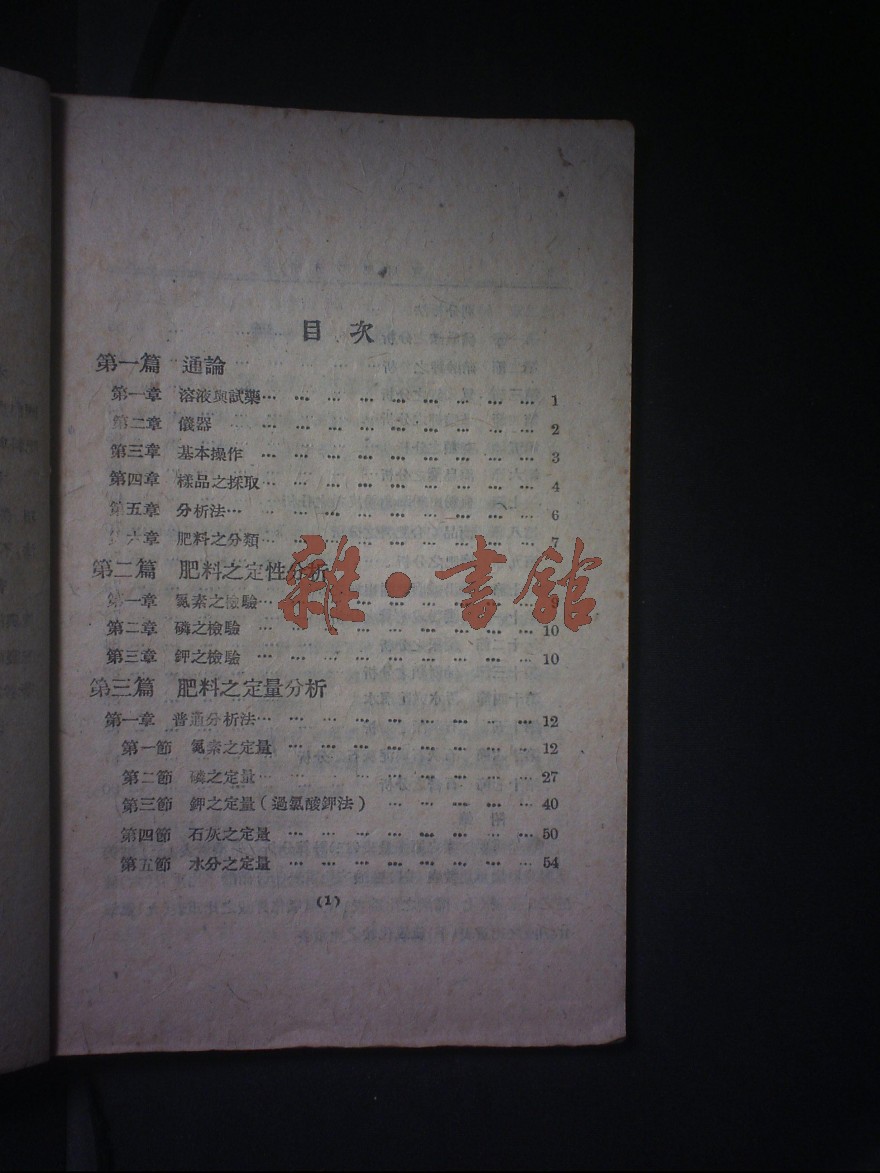 目次
第一篇 通論
第一章 溶液與試藥… … … … … … … … … 1
第二章 儀器 … … … … … … … … … … 2
第三章 基本操作 … … … … … … … … … 3
第四章 樣品之採取… … … … … … … … … 4
第五章 分析法… … … … … … … … … … 6
六章 肥料之分類… … … … … … … … … 7
第二篇 肥料之定性分析
第一章 氮素之檢驗… … … … … … … … … 9
第二章 磷之檢驗 … … … … … … … … … 10
第三章 鉀之檢驗 … … … … … … … … … 10
第三篇 肥料之定量分析
第一章 普通分析法… … … … … … … … … 12
第一節 氮素之定量 … … … … … … … … 12
第二節 磷之定量… … … … … … … … … 27
第三節 鉀之定量(過氯酸鉀法) … … … … … 40
第四節 石灰之定量 … … … … … … … … 50
第五節 水分之定量 … … … … … … … … 54
(1)
雜·書館